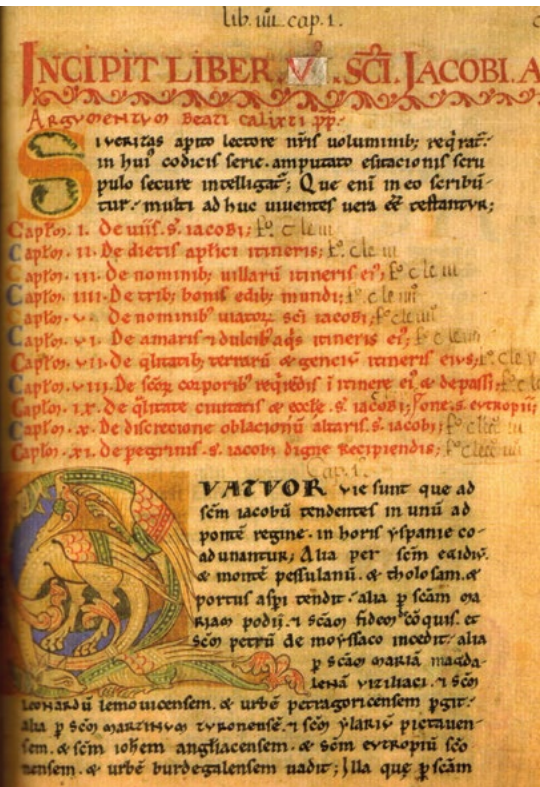 lib. iiii. cap. 1.
INCIPIT LIBER .V. SCI. JACOBI. A
Argumentum Beati Calixti pp.
Si veritas apito lectore nris voluminib; reqrat.
in hui codicis serie. amputato esitacionis scru
pulo secure intelligat; Que eni in eo scribu
tur. multi ad huc viventes vera eē testantur;
Captm. I. De viis. s. iacobi;
Captm. II. De dietis aplici itineris;
Captm. III. De nominib; villarū itineris ei;
Captm. IIII. De trib; bonis edib; mundi;
Captm. V. De nominib viatorꝝ sci iacobi;
Captm. VI. De amaris ⁊ dulcib aqs itineris ei;
Captm. VII. De qlitatib; terrarū & genciū itineris eius;
Captm. VIII. De scoꝝ corporib reqrēdis ī itinere ei. & de passi.
Captm. IX. De qlitate civitatis & eccle. s. iacobi;
Captm. X. De discretione oblacionū altaris. s. iacobi;
Captm. XI. De pegrinis. s. iacobi digne recipiendis;
Cap. 1.
QVATVOR vie sunt que ad
scm iacobū tendentes in unū ad
pontē regine. in horis yspanie co
adunantur; Alia per scm egidiū.
& montē pessulanū. & tholosam. &
portus aspi tendit. alia p scām ma
riam podii. ⁊ scām fidem cōquis. et
scm petrū de moyssaco incedit. alia
p scām mariā magda
lenā viziliaci. ⁊ scm
leonardū lemovicensem. & urbē petragoricensem pgit.
alia p scm martinum turonensē. ⁊ scm ylariū pictaven
sem. & scm iohem angliacensem. & scm eutropiū sco
nensem. & urbē burdegalensem vadit; Illa que p scām